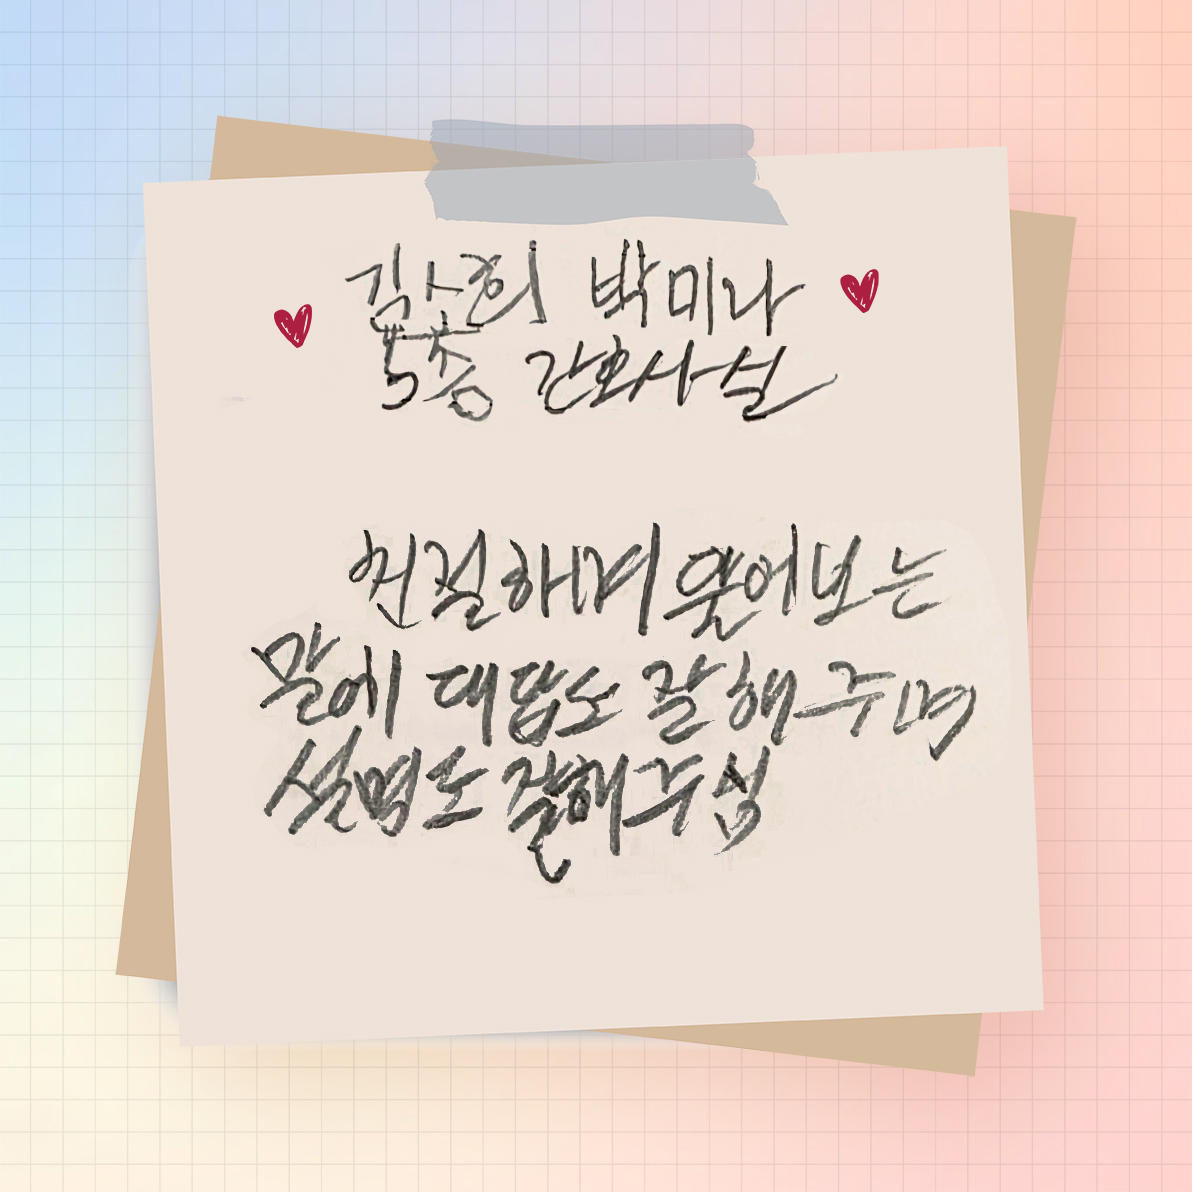 김소희 박미나
5층 간호사실
친절하며 물어보는
말에 대답도 잘해주며
설명도 잘해주심